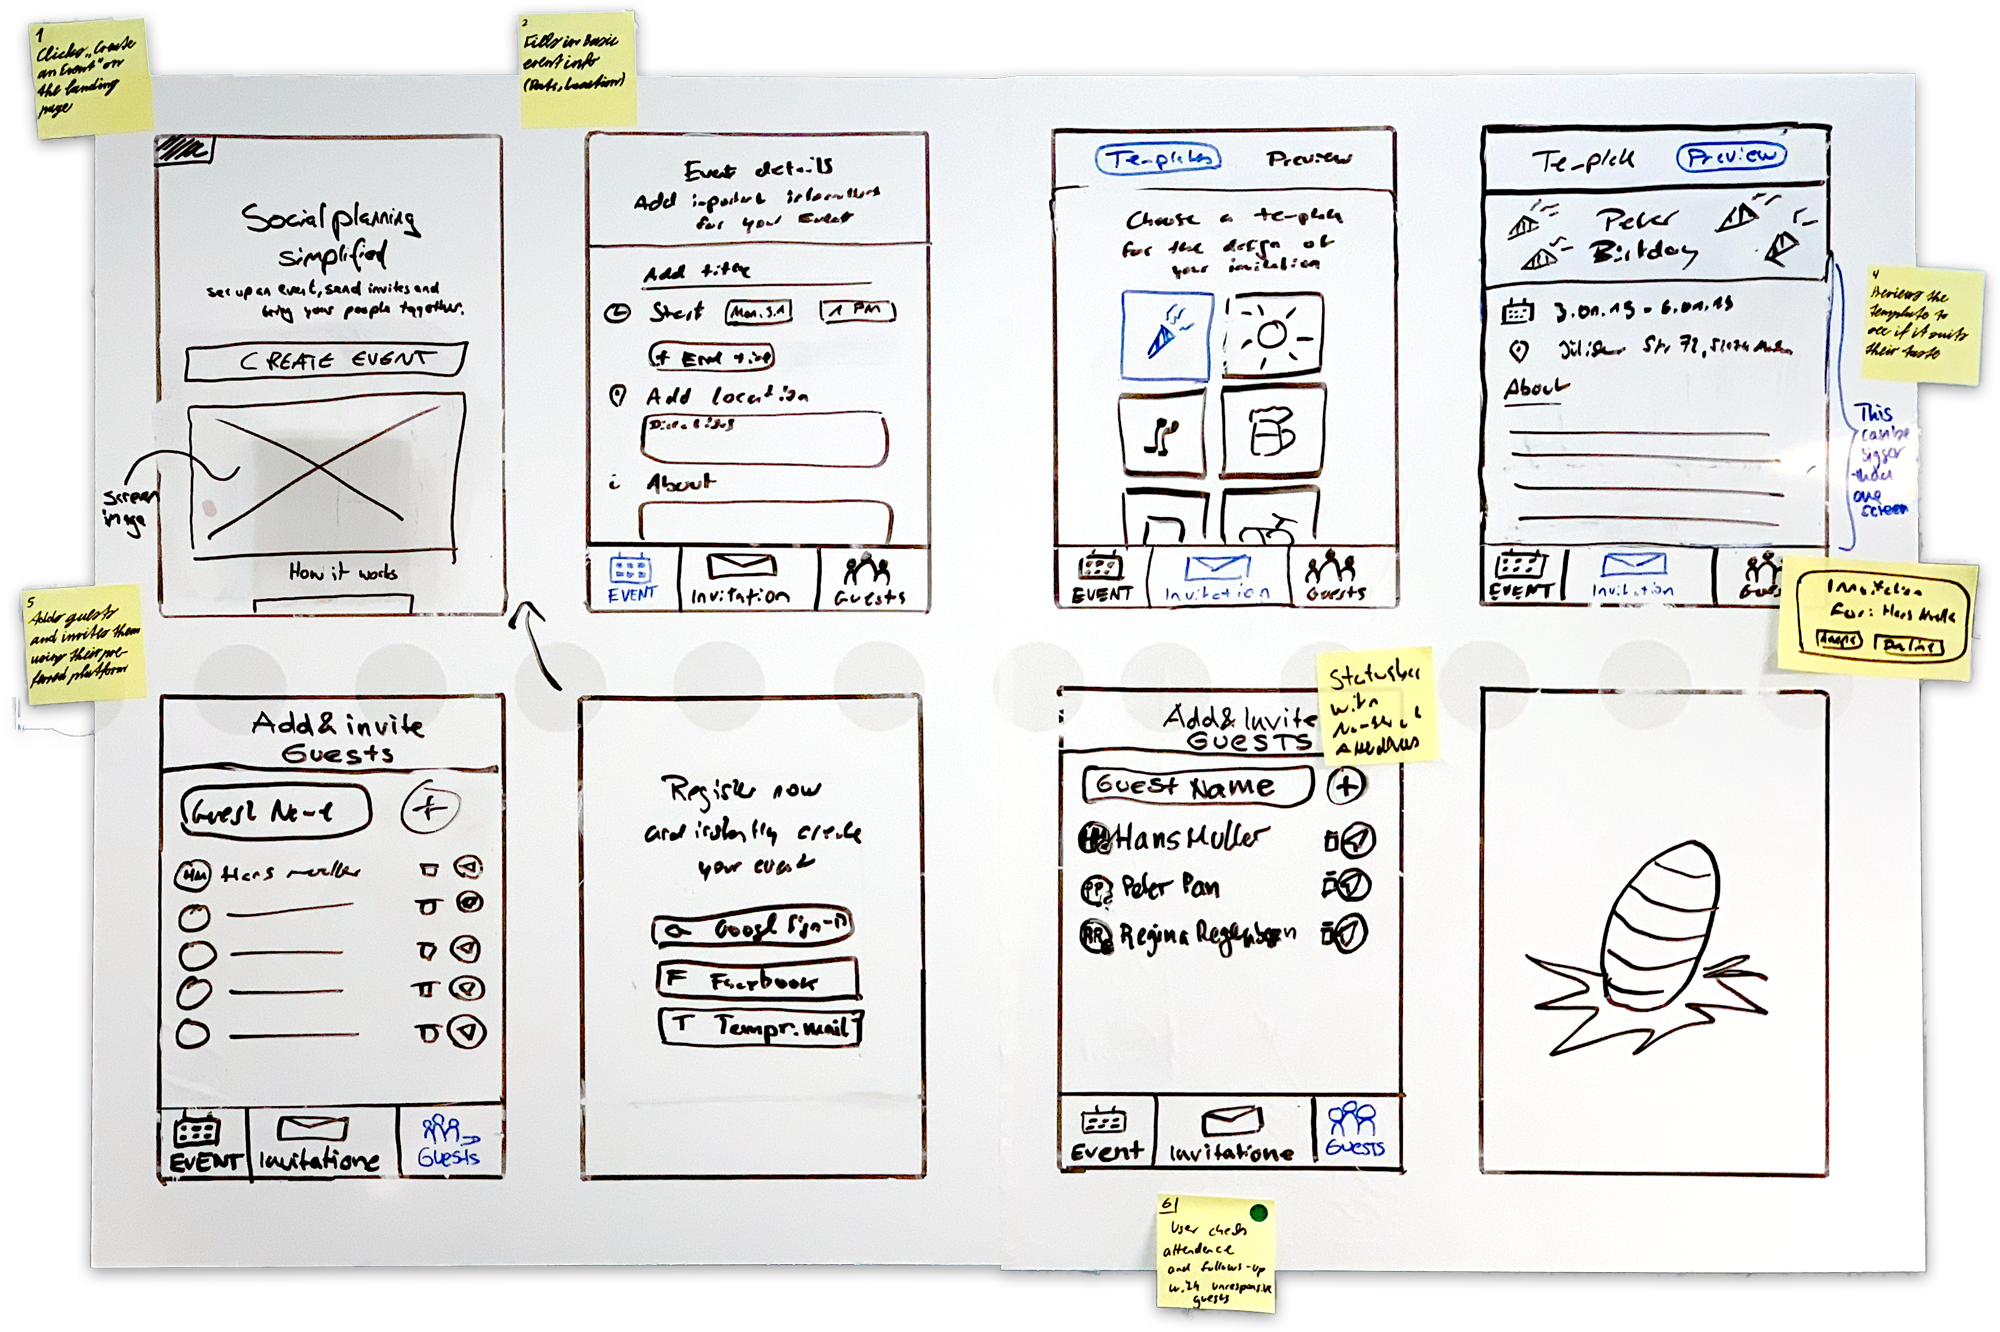 1
Clicks „Create
an Event" on
the landing
page
2
Fills in Basic
event info
(Date, Location)
Social planning
simplified
set up an event, send invites and
bring your people together.
CREATE EVENT
screen
image
How it works
Event details
Add important informations
for your Event
Add title
Start
Mon. 3.1
1 PM
+ End time
Add location
i About
EVENT
Invitation
Guests
Templates
Preview
Choose a template
for the design of
your invitation
EVENT
Invitation
Guests
Template
Preview
Peter
Birtday
3.01.19 - 6.01.19
Str. 72,
About
EVENT
Invitation
4
Previews the
template to
see if it suits
their taste
This
can be
bigger
than
one
screen
Invitation
For: Hans Muller
5
Adds guests
and invites them
using their pre-
ferred platform
Add & invite
Guests
Guest Name
HM Hans muller
EVENT
Invitatione
Guests
Register now
and instantly create
your event
G Google Sign-in
F Facebook
T Tempr. mail
Statusbar
with
Number of
Attendees
Add & Invite
GUESTS
Guest Name
HM Hans Muller
PP Peter Pan
RR Regina Regenbogen
Event
Invitatione
Guests
6
User checks
attendence
and follows-up
with unresponsive
guests